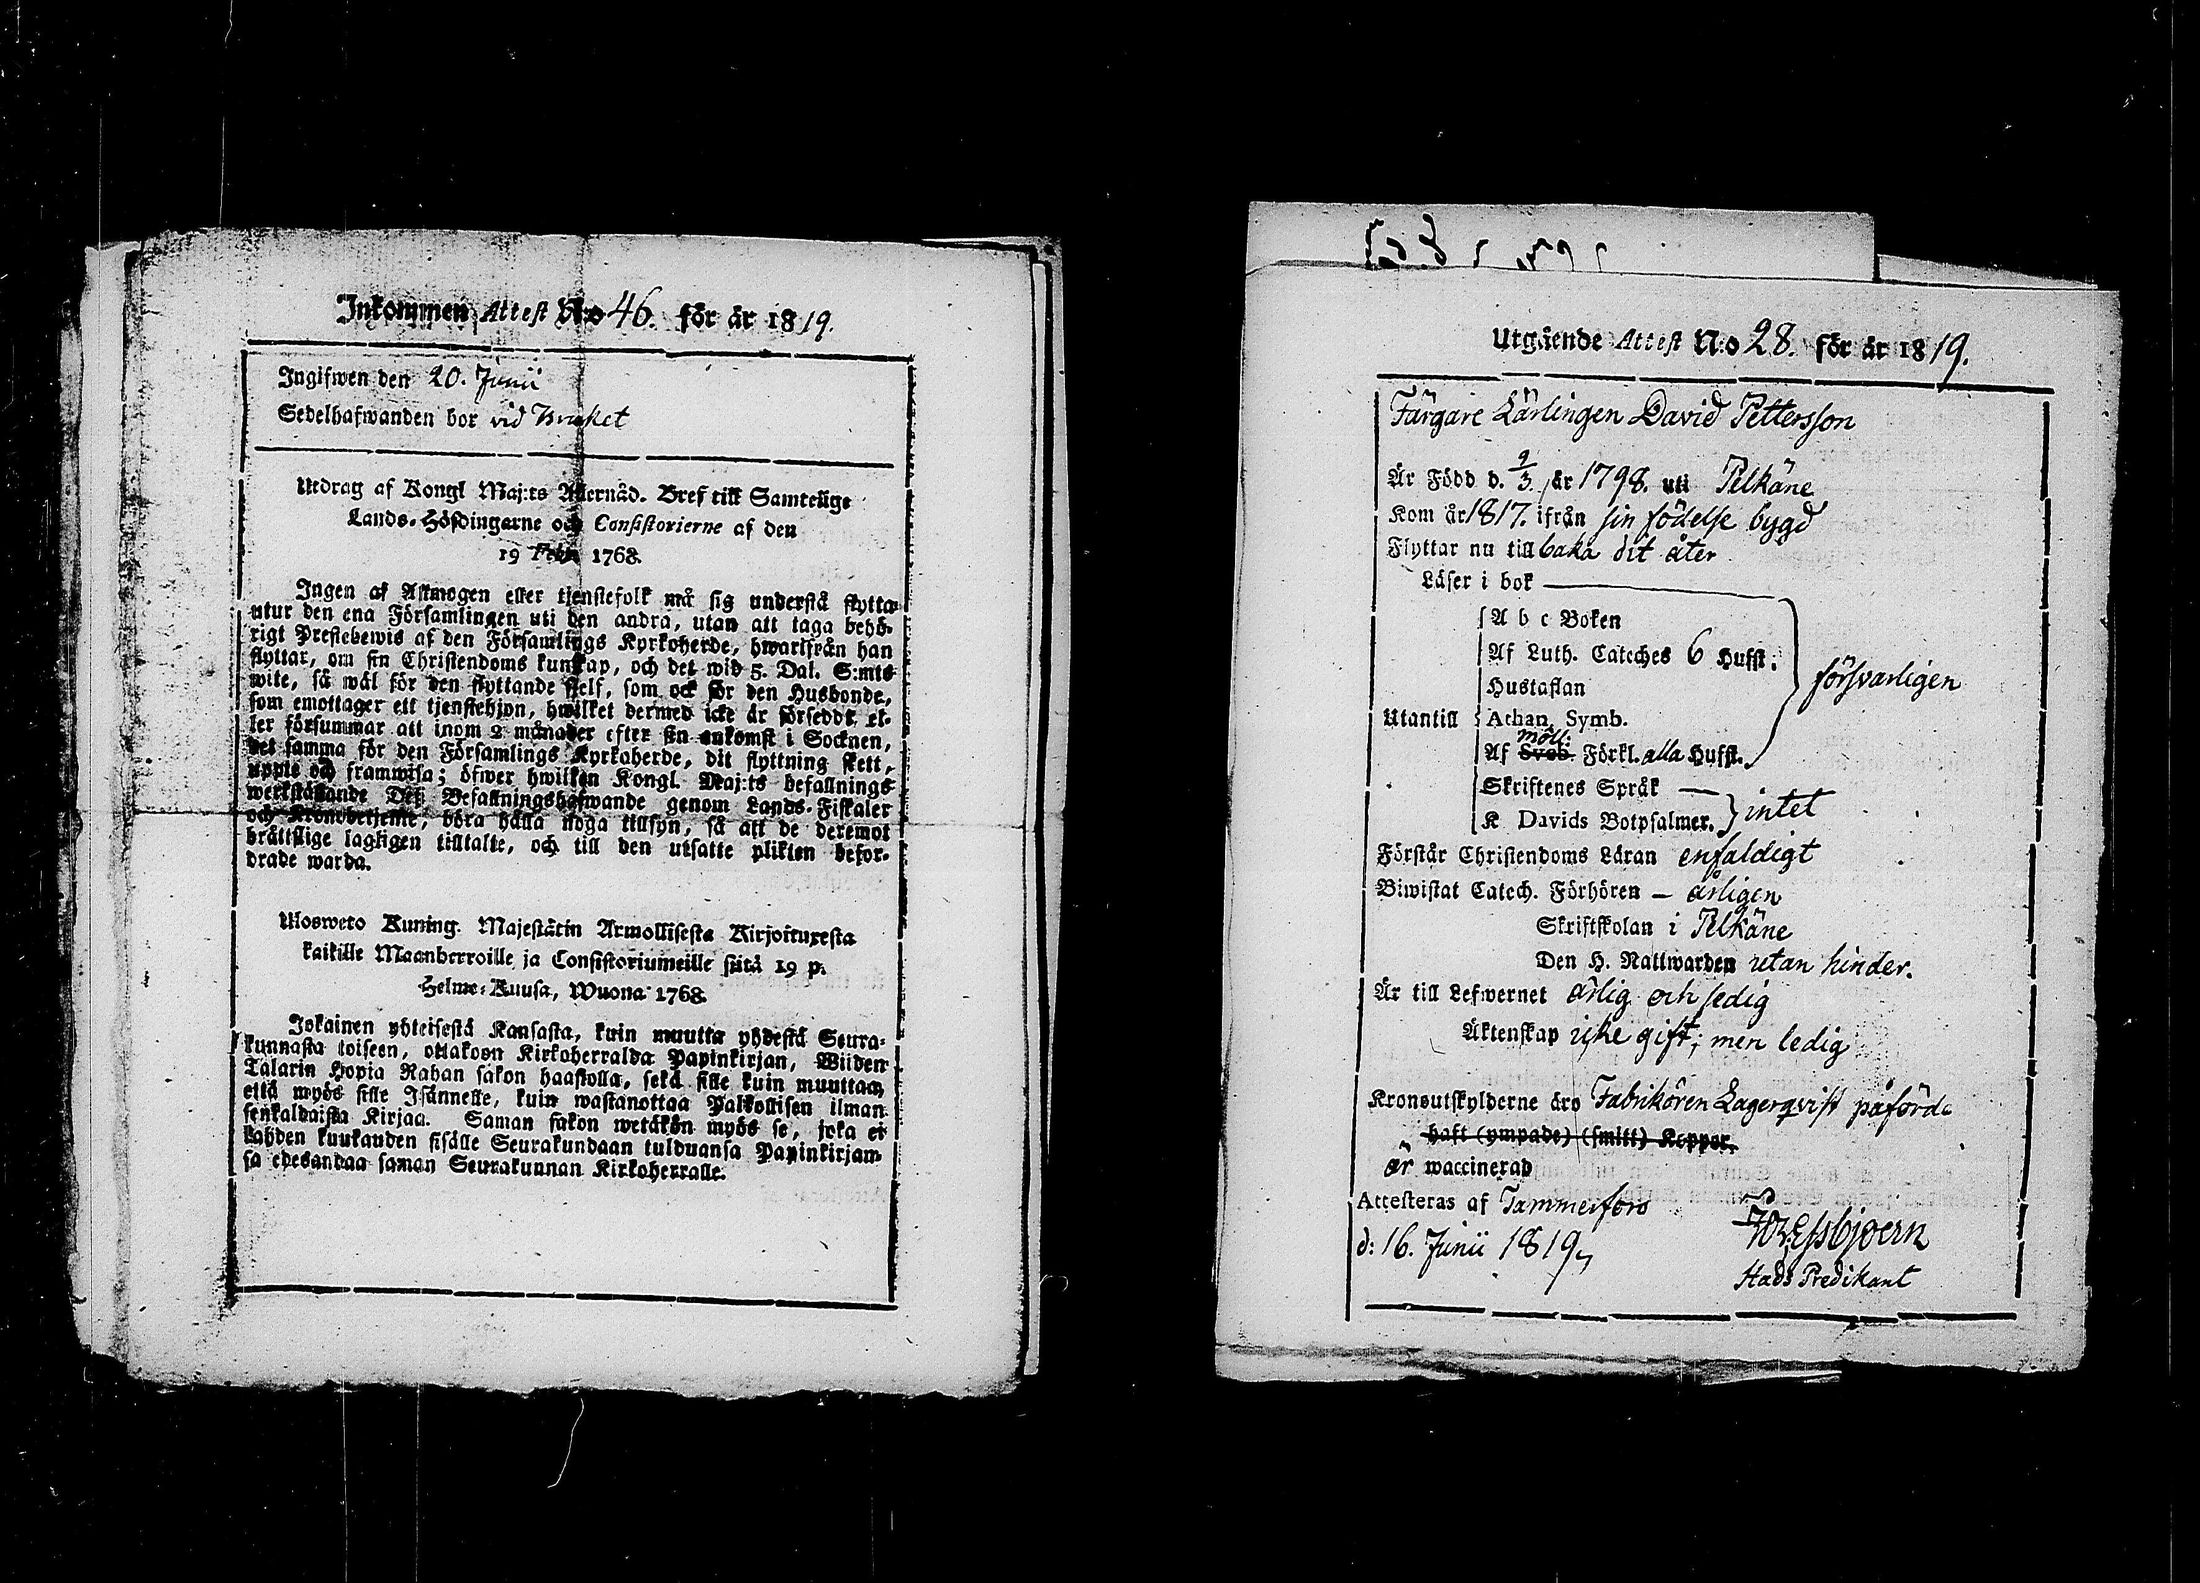 Inkommen Attest N:o 46. för år 1819.
Ingifwen den 20. Junii
Sedelhafwanden bor vid
Utdrag af Kongl Maj:ts Allernåd. Bref till Samtelige
Lands-Höfdingarne och Consistorierne af den
19 Febr. 1768.
Ingen af Allmogen eller tjenstefolk må sig understå flytta
utur den ena Församlingen uti den andra, utan att taga behö-
rigt Prestebewis af den Församlings Kyrkoherde, hwarifrån han
flyttar, om sin Christendoms kunskap, och det wid 5. Dal. S:mts
wite, så wäl för den flyttande sielf, som ock för den Husbonde,
som emottager ett tjenstehjon, hwilket dermed icke är förseddt, el-
ler försummar att inom 2 månader efter sin ankomst i Socknen,
det samma för den Församlings Kyrkoherde, dit flyttning skett,
uppte och framwisa; öfwer hwilken Kongl. Maj:ts befallnings
werkställande Des Befallningshafwande genom Lands-Fiskaler
och Kronobetjente, böra hålla noga tillsyn, så att de deremot
bråttslige lagligen tilltalte, och till den utsatte plikten befor-
drade warda.
Ulosweto Kuning. Majestätin Armollisesta Kirjoituxesta
kaikille Maanherroille ja Consistoriumeille siitä 19 p.
Helme-Kuusa, Wuona 1768.
Jokainen yhteisestä Kansasta, kuin muutta yhdestä Seura-
kunnasta toiseen, ottakoon Kirkoherralda Papinkirjan, Wiiden
Talarin Hopia Rahan sakon haastolla, sekä sille kuin muuttaa,
että myös sille Isännelle, kuin wastanottaa Palkollisen ilman
senkaldaista Kirjaa. Saman sakon wetäkön myös se, joka ei
kahden kuukauden sisälle Seurakundaan tulduansa Papinkirjan-
sa edesandaa saman Seurakunnan Kirkoherralle.
Utgående Attest N:o 28. för år 1819.
Färgare Lärlingen David Pettersson
Är Född d. 9/3 år 1798. uti Pelkäne
Kom år 1817. ifrån sin födelse bygd
Flyttar nu tillbaka dit åter
Läser i bok
A b c Boken
Af Luth. Cateches 6 Hufst.
försvarligen
Hustaflan
Utantill Athan. Symb.
möll:
Af Sveb. Förkl. alla Hufst.
Skriftenes Språk
intet
K Davids Botpsalmer.
Förstår Christendoms Läran enfaldigt
Biwistat Catech. Förhören – årligen
Skriftskolan i Pelkäne
Den H. Nattwarden utan hinder.
Är till Lefwernet ärlig och sedig
Äktenskap icke gift, men ledig
Kronoutskylderne äro Fabrikören Lagerqvist påförde
haft (ympade) (smitt) Koppor.
är waccinerad
Attesteras af Tammerfors
d: 16. Junii 1819
Stads Predikant